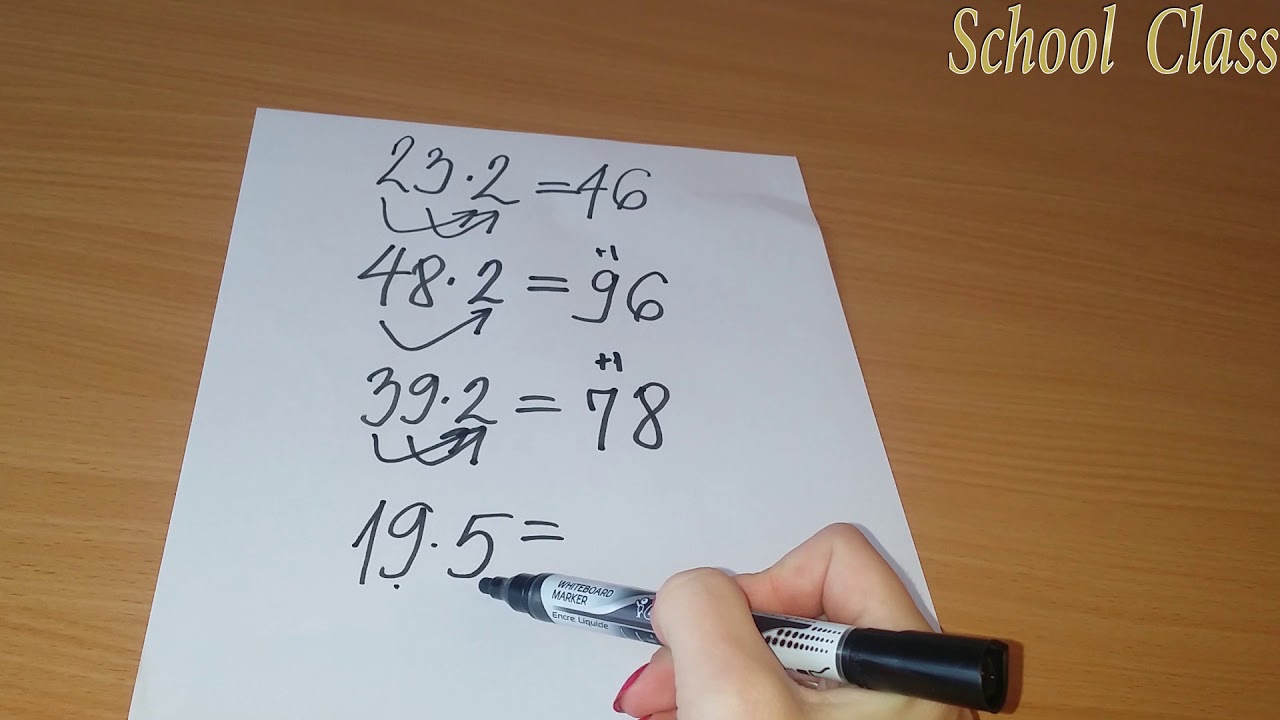 School Class
23·2=46
+1
48·2=96
+1
39·2=78
19·5=
WHITEBOARD
MARKER
Encre Liquide